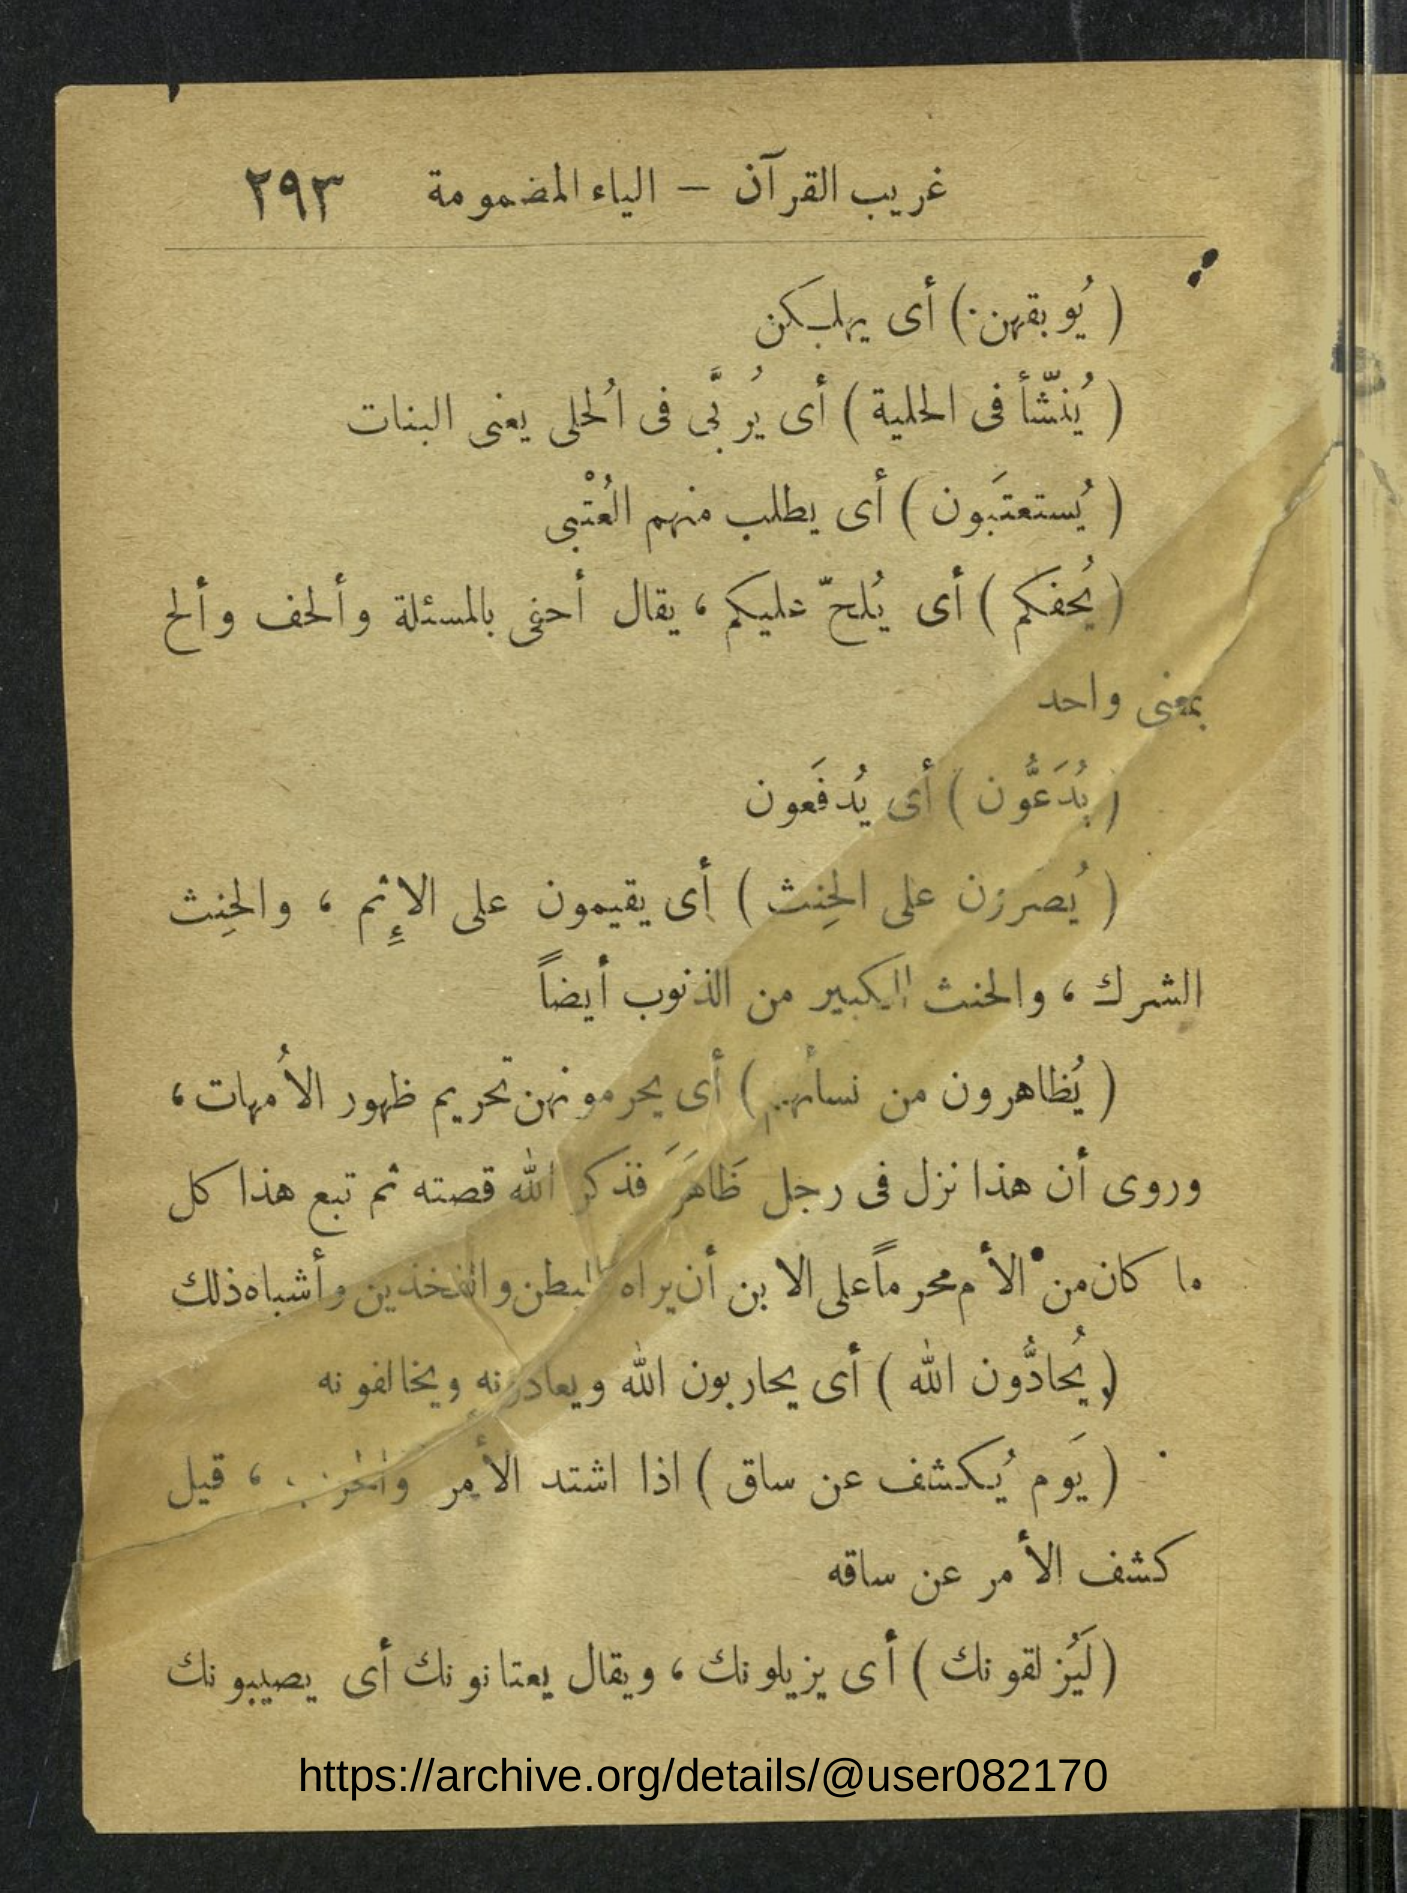 غريب القرآن — الياء المضمومة ٢٩٣
( يُوبقهن ) أى يهلكهن
( يُنَشّأ فى الحلية ) أى يُربَّى فى الُحلى يعنى البنات
( يُستعتَبون ) أى يطلب منهم العُتْبى
( يُحفكم ) أى يُلحّ عليكم ، يقال أحفى بالمسئلة وألحف وألح
بمعنى واحد
( يُدَعُّون ) أى يُدفَعون
( يُصرون على الحِنث ) أى يقيمون على الإِثم ، والحِنث
الشرك ، والحنث الكبير من الذنوب أيضاً
( يُظاهرون من نسائهم ) أى يحرمونهن تحريم ظهور الأُمهات ،
وروى أن هذا نزل فى رجل ظَاهَرَ فذكر الله قصته ثم تبع هذا كل
ما كان من الأم محرماً على الابن أن يراه البطن والفخذين وأشباه ذلك
( يُحادُّون الله ) أى يحاربون الله ويعادونه ويخالفونه
( يَوم يُكشف عن ساق ) اذا اشتد الأمر ، قيل
كشف الأمر عن ساقه
( لَيُزلقونك ) أى يزيلونك ، ويقال يعتانونك أى يصيبونك
https://archive.org/details/@user082170